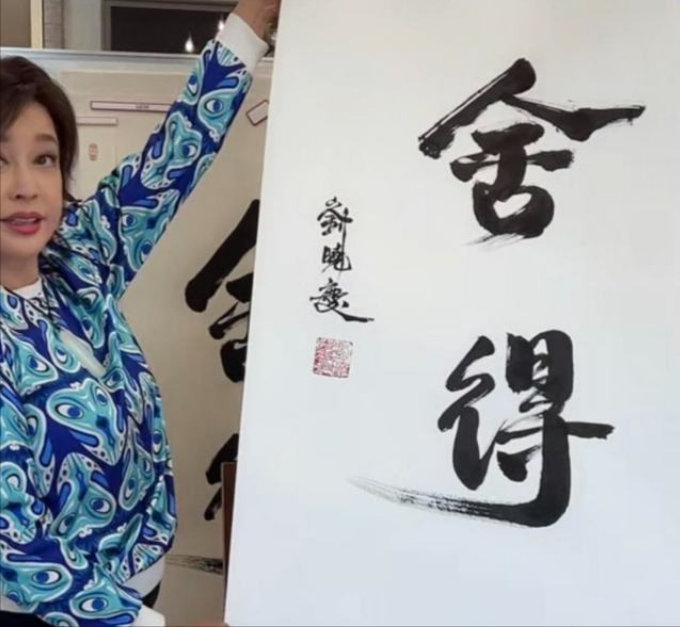 舍得
劉曉慶